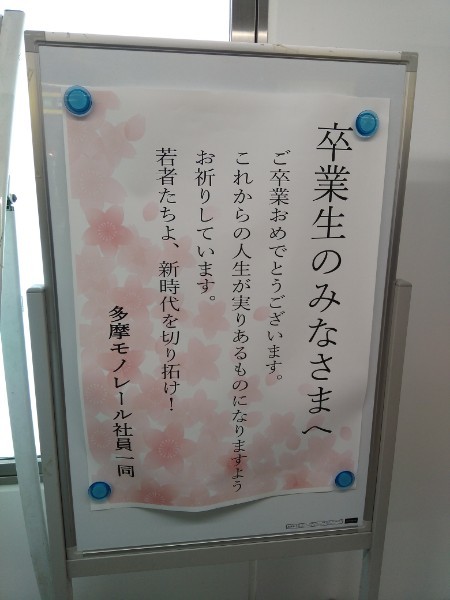 卒業生のみなさまへ
ご卒業おめでとうございます。
これからの人生が実りあるものになりますよう
お祈りしています。
若者たちよ、新時代を切り拓け！
多摩モノレール社員一同